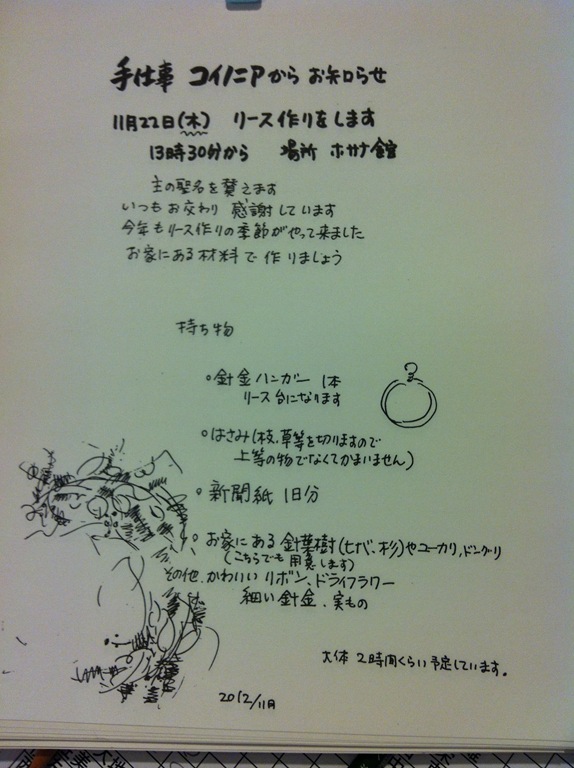 手仕事 コイノニアから お知らせ
11月22日(木) リース作りをします
13時30分から 場所 ホサナ館
主の聖名を賛えます
いつもお交わり 感謝しています
今年もリース作りの季節がやって来ました
お家にある材料で作りましょう
持ち物
○針金ハンガー 1本
リース台になります
○はさみ(枝、草等を切りますので
上等の物でなくてかまいません)
○新聞紙 1日分
○お家にある針葉樹(ヒバ、杉)やユーカリ、ドングリ
(こちらでも用意します)
その他、かわいいリボン、ドライフラワー
細い針金、実もの
大体 2時間くらい予定しています。
2012/11月